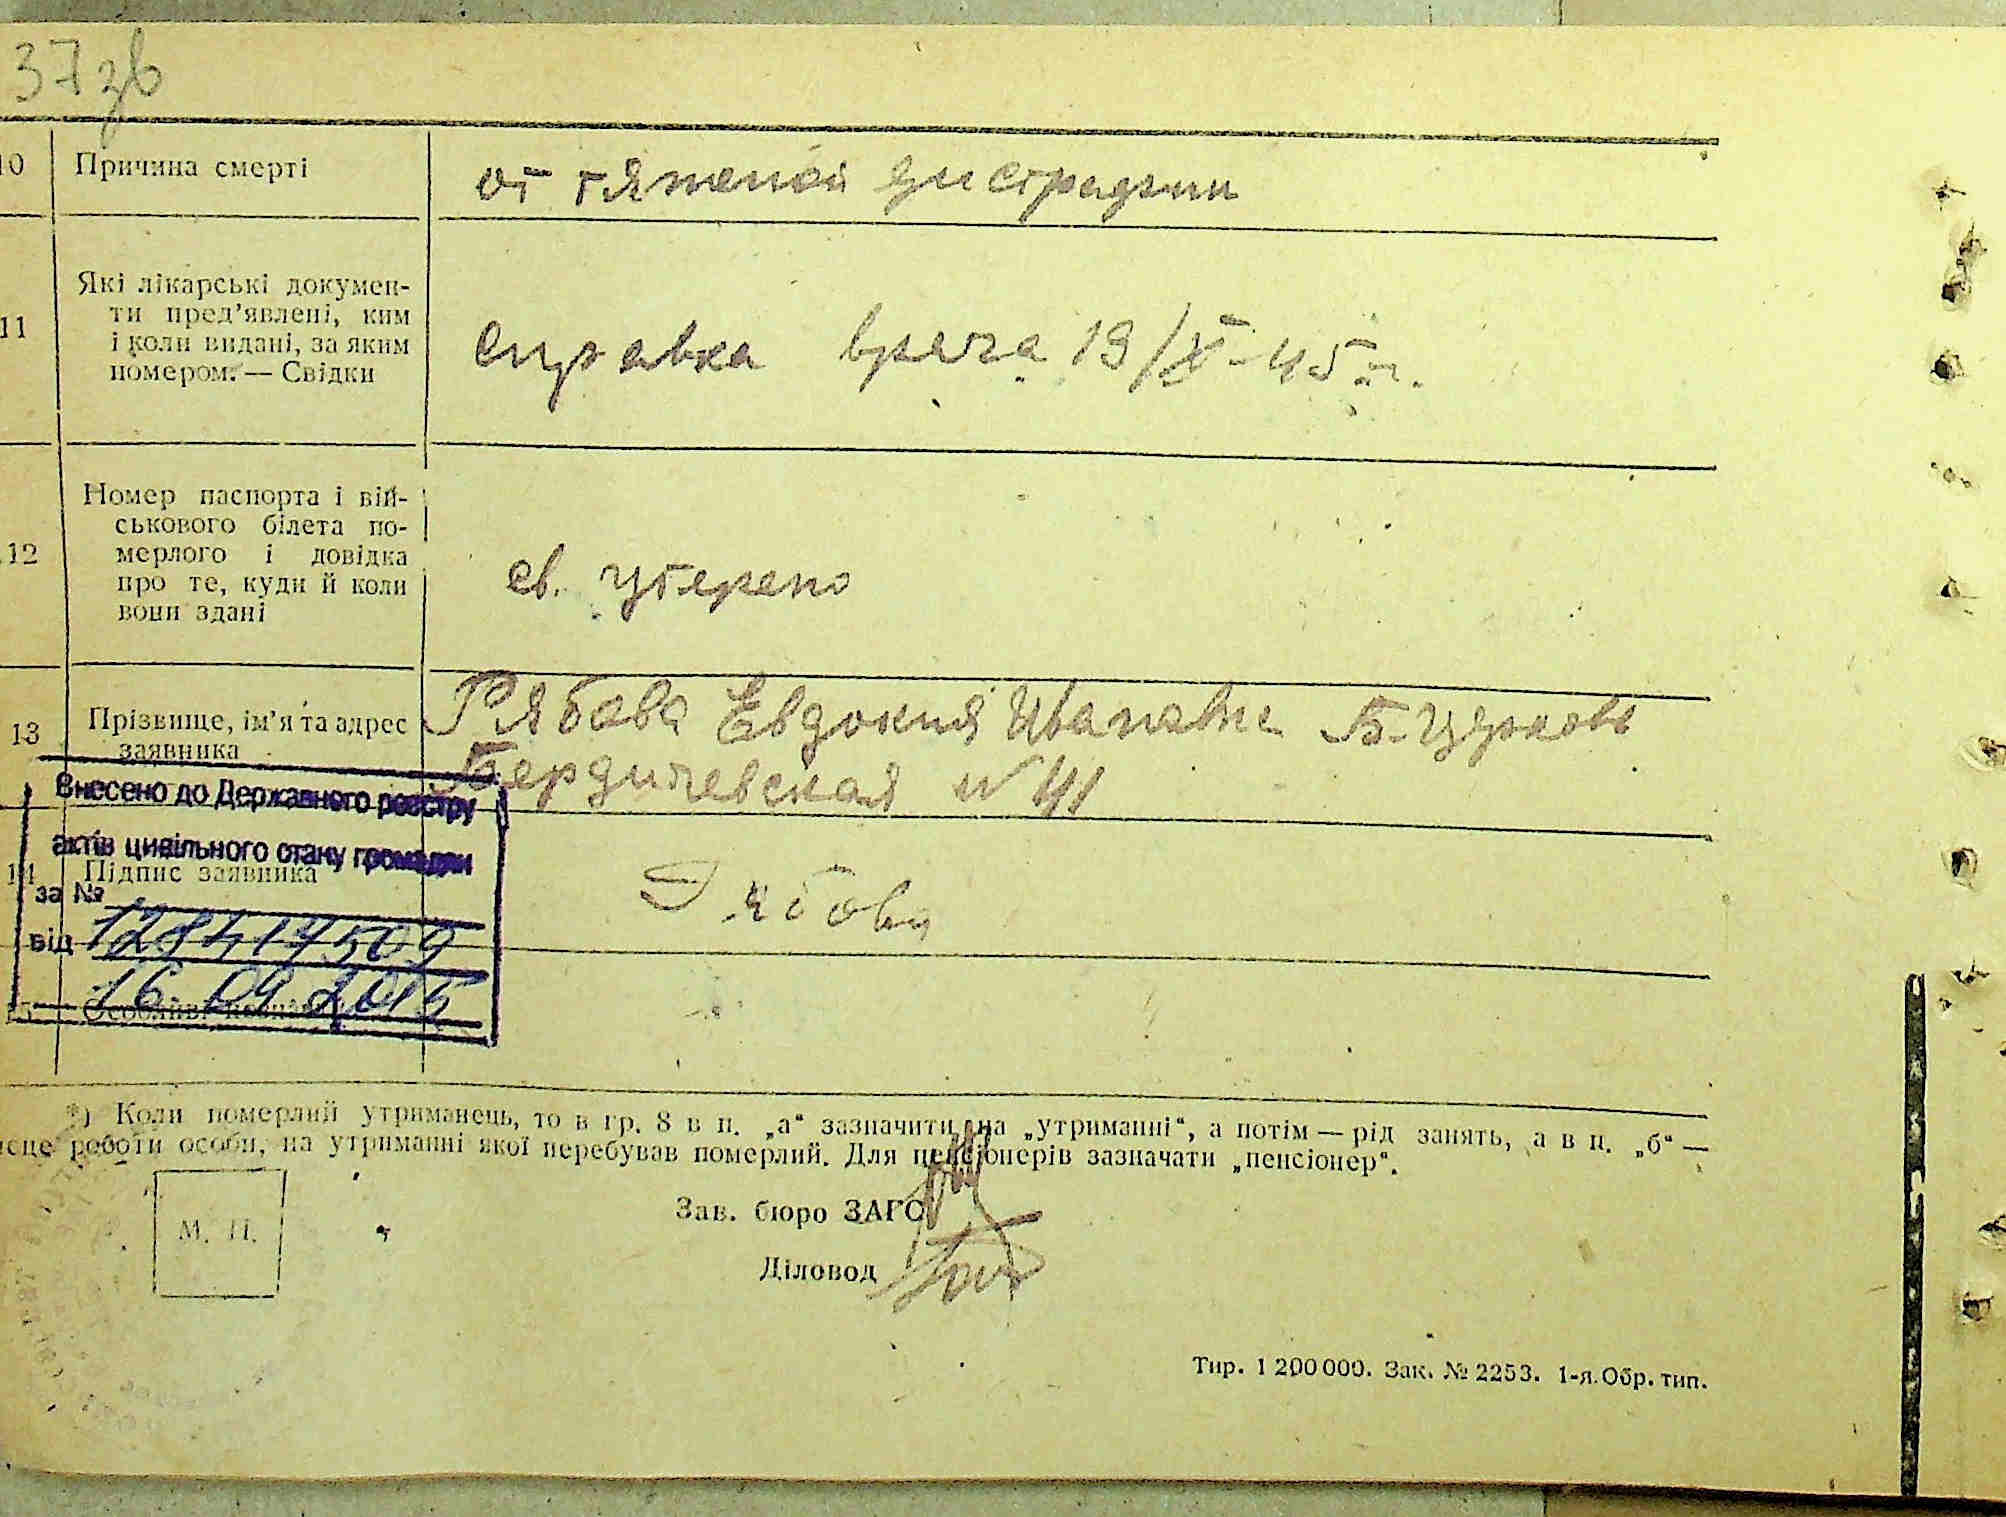 37зв
10 Причина смерті от тяжелой дистрофии
11 Які лікарські докумен-
ти пред’явлені, ким
і коли видані, за яким
номером. — Свідки
Справка врача 19/X-45 г.
12 Номер паспорта і вій-
ськового білета по-
мерлого і довідка
про те, куди й коли
вони здані
св. утеряно
13 Прізвище, ім’я та адрес
заявника
Рябова Евдокия Ивановна Б-Церковь
Бердичевская N 41
Внесено до Державного реєстру
актів цивільного стану громадян
за №
14 Підпис заявника
Рябова
від 128417509
16.09.2015
15 Особливі
*) Коли померлий утриманець, то в гр. 8 в п. „а“ зазначити „на „утриманні“, а потім — рід занять, а в п. „б“ —
ісце роботи особи, на утриманні якої перебував померлий. Для пенсіонерів зазначати „пенсіонер“.
М. П.
Зав. бюро ЗАГС
Діловод
Тир. 1 200 000. Зак. № 2253. 1-я Обр. тип.